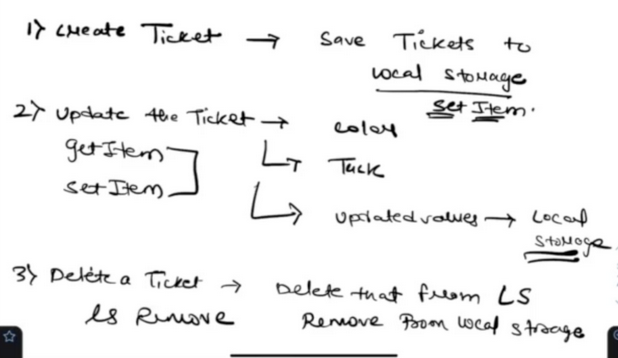 1) Create Ticket → Save Tickets to
local storage
set Item.
2) Update the Ticket → color
getItem
↳ Task
setItem
↳ updated values → Local
storage
3) Delete a Ticket → Delete that from LS
LS Remove Remove from local storage